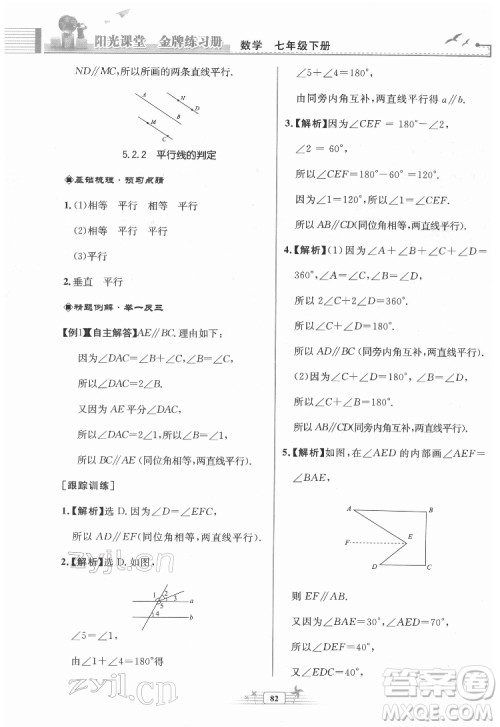 阳光课堂 金牌练习册 数学 七年级下册
ND∥MC,所以所画的两条直线平行.
A
N
D
M
C
B
5.2.2 平行线的判定
基础梳理·预习点睛
1.(1)相等 平行 相等 平行
(2)相等 平行
(3)平行
2.垂直 平行
精题例解·举一反三
【例1】【自主解答】AE∥BC.理由如下:
因为∠DAC=∠B+∠C,∠B=∠C,
所以∠DAC=2∠B.
因为∠DAC=2∠EAD,
所以∠B=∠EAD,
所以BC∥AE(同位角相等,两直线平行).
[跟踪训练]
1.【解析】选D.因为∠D=∠EFC,
所以AD∥EF(同位角相等,两直线平行).
2.【解析】
3 2
5 1 a
4 b
∠5=∠1+∠2.
因为∠1+∠2+∠4=180°,
所以∠5+∠4=180°,
由同旁内角互补,两直线平行得a∥b.
3.【解析】因为∠CEF=180°-∠2,
∠2=60°,
所以∠CEF=180°-60°=120°,
所以∠CEF=∠1,
所以AB∥CD(同位角相等,两直线平行).
4.【解析】(1)因为∠A+∠B+∠C+∠D=
360°,∠A=∠C,∠B=∠D,
所以2∠C+2∠B=360°,
所以∠C+∠B=180°,
所以AB∥CD(同旁内角互补,两直线平行).
(2)因为∠C+∠B=180°,∠B=∠D,
所以∠C+∠D=180°,
所以AD∥BC(同旁内角互补,两直线平行).
5.【解析】如图,在∠AED的内部画∠AEF=
∠BAE,
A
B
F
E
C
D
则 EF∥AB.
又因为∠BAE=30°,所以∠AEF=30°,
又因为∠AED=90°,所以∠DEF=60°,
又因为∠CDE=60°,
82
zyjl.cn
zyjl.cn
答案圈